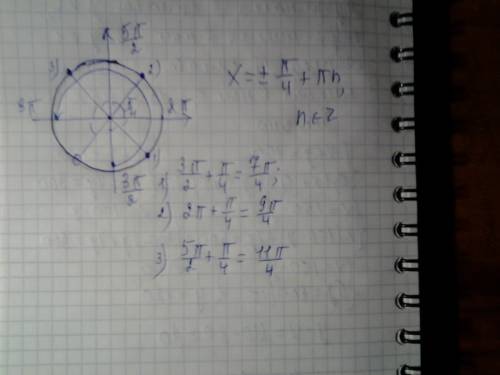 5π/2
3)
2)
3π
π/4
2π
1)
3π/2
x = ± π/4 + πn,
n ∈ Z
1) 3π/2 + π/4 = 7π/4;
2) 2π + π/4 = 9π/4
3) 5π/2 + π/4 = 11π/4.